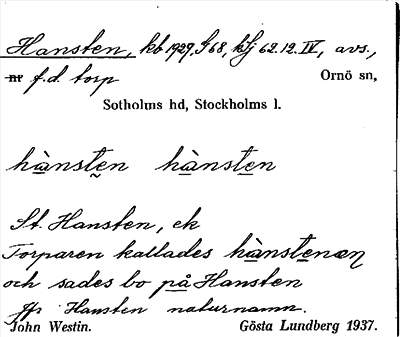 Hansten, kb 1929, S 68, kSj 62.12. IV, avs.,
nr f.d. torp Ornö sn,
Sotholms hd, Stockholms l.
hànsten hànsten
St. Hansten, ek
Torparen kallades hànstenæn
och sades bo på Hansten
Hansten naturnamn.
John Westin. Gösta Lundberg 1937.